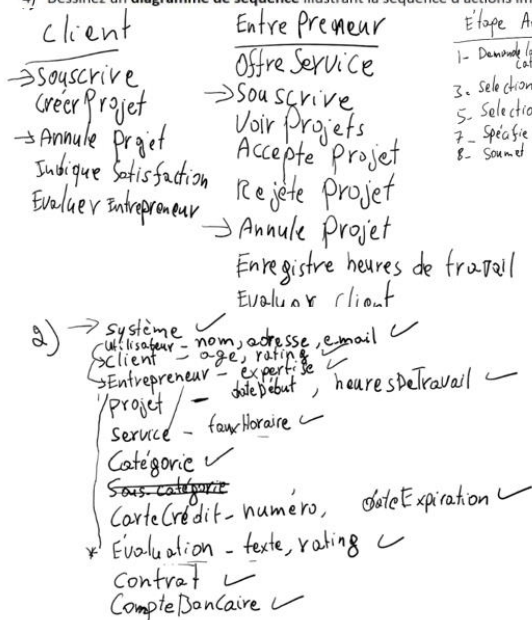 4) Dessinez un diagramme de séquence illustrant la séquence d'actions
Client
→Souscrire
Créer Projet
→Annule Projet
Indique Satisfaction
Evaluer Entrepreneur
Entrepreneur
Offre Service
→Souscrire
Voir Projets
Accepte Projet
Rejète Projet
→Annule Projet
Enregistre heures de travail
Evaluer client
Étape
1- Demande
3. Selection
5- Selectio
7- Spécifie
8- Soumet
2) → Système ✓
utilisateur - nom, adresse, email ✓
Client - age, rating ✓
Entrepreneur - expertise ✓
projet - dateDébut, heuresDeTravail ✓
service - tauxHoraire ✓
Catégorie ✓
Sous-catégorie
CarteCrédit - numéro, dateExpiration ✓
* Évaluation - texte, rating ✓
Contrat ✓
CompteBancaire ✓